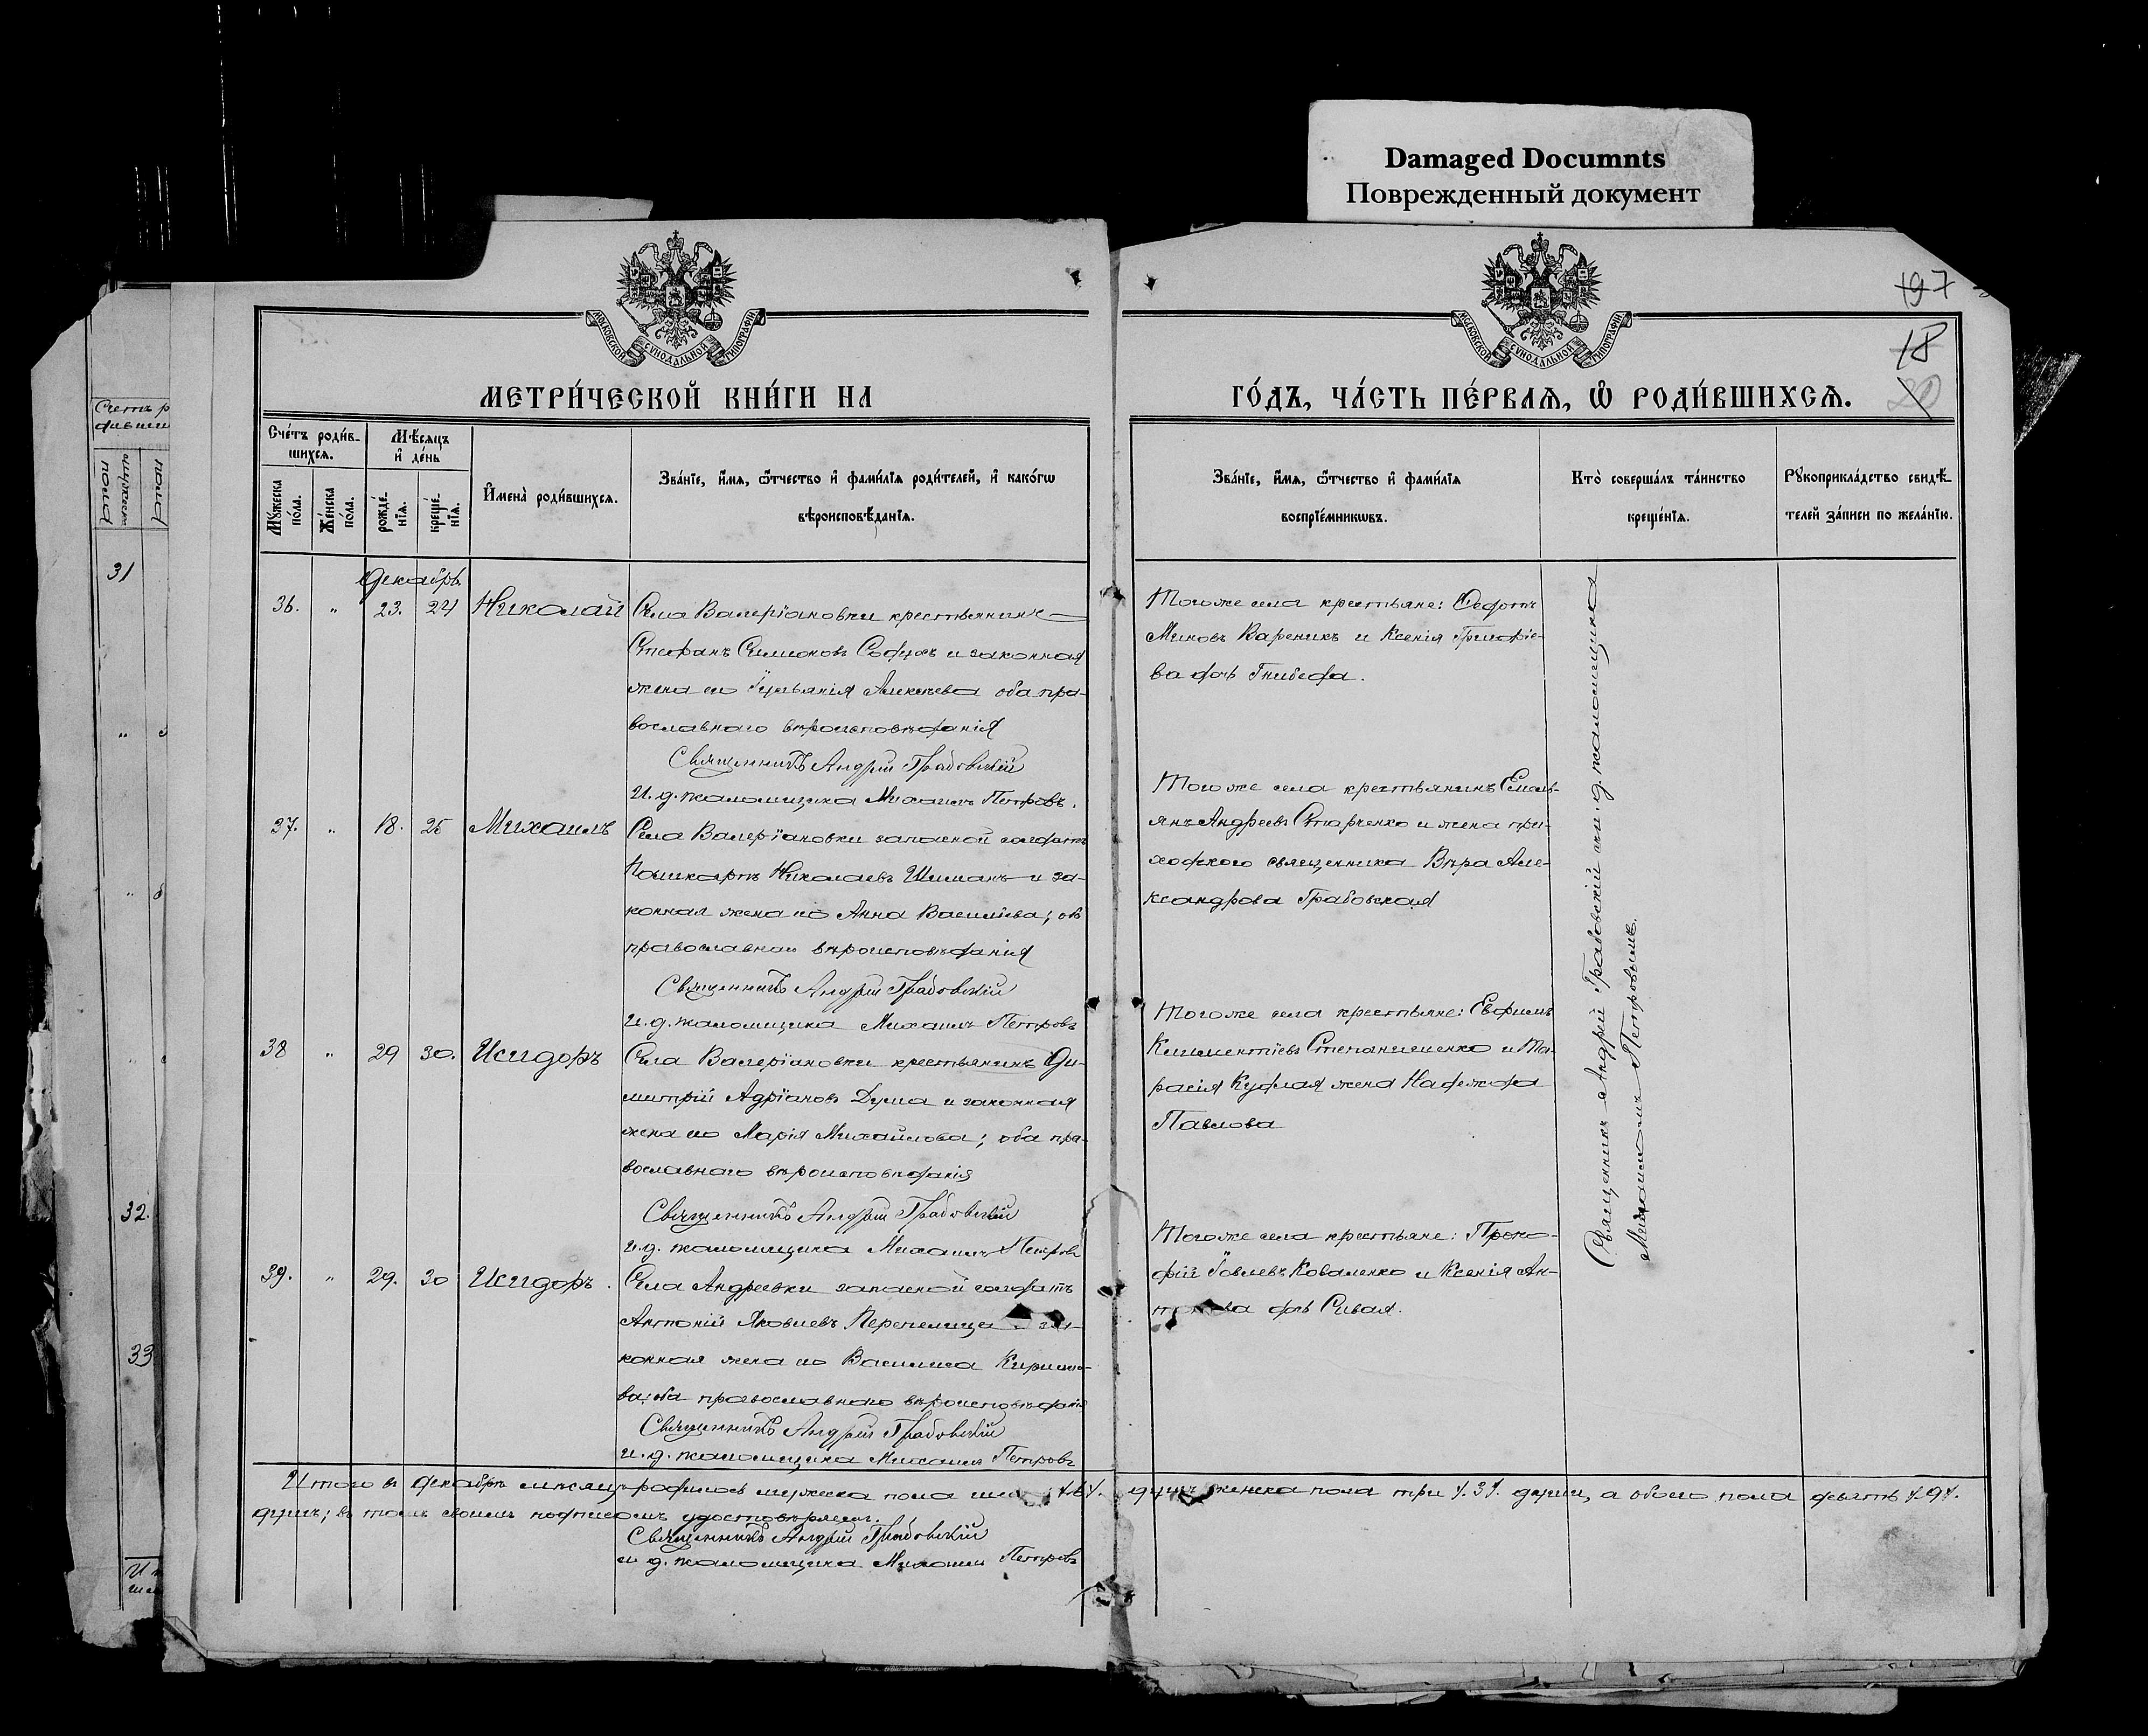 Damaged Documnts
Поврежденный документ
197
18
20
МОСКОВСКОЙ СѴНОДАЛЬНОЙ ТИПОГРАФІИ
МОСКОВСКОЙ СѴНОДАЛЬНОЙ ТИПОГРАФІИ
МЕТРИ́ЧЕСКОЙ КНИ́ГИ НА
ГО́ДЪ, ЧА́СТЬ ПЕ́РВАѦ, Ѡ҆ РОДИ́ВШИХСѦ.
Счетъ р
дивши
пола
мужеск
пола
31
32.
33
Сче́тъ роди́в-
шихсѧ.
Мѣ́сѧцъ
и҆ де́нь
Му́жеска по́ла.
Же́нска по́ла.
рожде́нїѧ.
креще́нїѧ.
И҆мена̀ роди́вшихсѧ.
Зва́нїе, и҆́мѧ, ѻ҆́тчество и҆ фами́лїѧ роди́телей, и҆ како́гѡ
вѣроисповѣ́данїѧ.
Зва́нїе, и҆́мѧ, ѻ҆́тчество и҆ фами́лїѧ
воспрїе́мникѡвъ.
Кто̀ соверша́лъ та́инство
креще́нїѧ.
Рꙋкоприкла́дство свидѣ́-
телей за́писи по жела́нїю.
Декабрь.
36. " 23. 24 Николай Села Валеріановки крестьянинъ
Стефанъ Симоновъ и законная
жена его Іуліанія Алексѣева оба пра-
вославнаго вѣроисповѣданія
Священникъ Андрей Грабовскій
И. д. псаломщика Михаилъ Петровъ.
Того же села крестьяне: Ѳеодотъ
Миновъ Вареникъ и Ксенія Григорiе-
ва дочь Гнибеда.
37. " 18. 25 Михаилъ Села Валеріановки запасной солдатъ
Поликарпъ Николаевъ Шиманъ и за-
конная жена его Анна Васильева; оба
православнаго вѣроисповѣданія
Священникъ Андрей Грабовскій
и. д. псаломщика Михаилъ Петровъ
Того же села крестьянинъ Емель-
янъ Андреевъ Старченко и жена при-
ходского священника Вѣра Але-
ксандрова Грабовская
38 " 29 30. Исидоръ Села Валеріановки крестьянинъ Ди-
митрій Адріановъ Дума и законная
жена его Марія Михайлова; оба пра-
вославнаго вѣроисповѣданія
Священникъ Андрей Грабовскій
и. д. псаломщика Михаилъ Петровъ
Того же села крестьяне: Евфимъ
Климентіевъ Степаниченко и Та-
расія Куцлая жена Надежда
Павлова
39. " 29. 30 Исидоръ. Села Андреевки запасной солдатъ
Антоній Яковлевъ Перепелица и за-
конная жена его Василиса Кирилло-
ва; оба православнаго вѣроисповѣданія
Священникъ Андрей Грабовскій
и. д. псаломщика Михаилъ Петровъ
Того же села крестьяне: Проко-
фій Іовлевъ Коваленко и Ксенія Ан-
тонова дочь Сивая.
Священникъ Андрей Грабовскій с и. д. псаломщика
Михаиломъ Петровымъ.
Итого въ декабрѣ мѣсяцѣ родилось мужеска пола /.6/. душъ женска пола три /.3/. души, а обоего пола девять /.9/.
душъ; въ томъ своимъ подписомъ удостовѣряемъ.
Священникъ Андрей Грабовскій
и д. псаломщика Михаилъ Петровъ